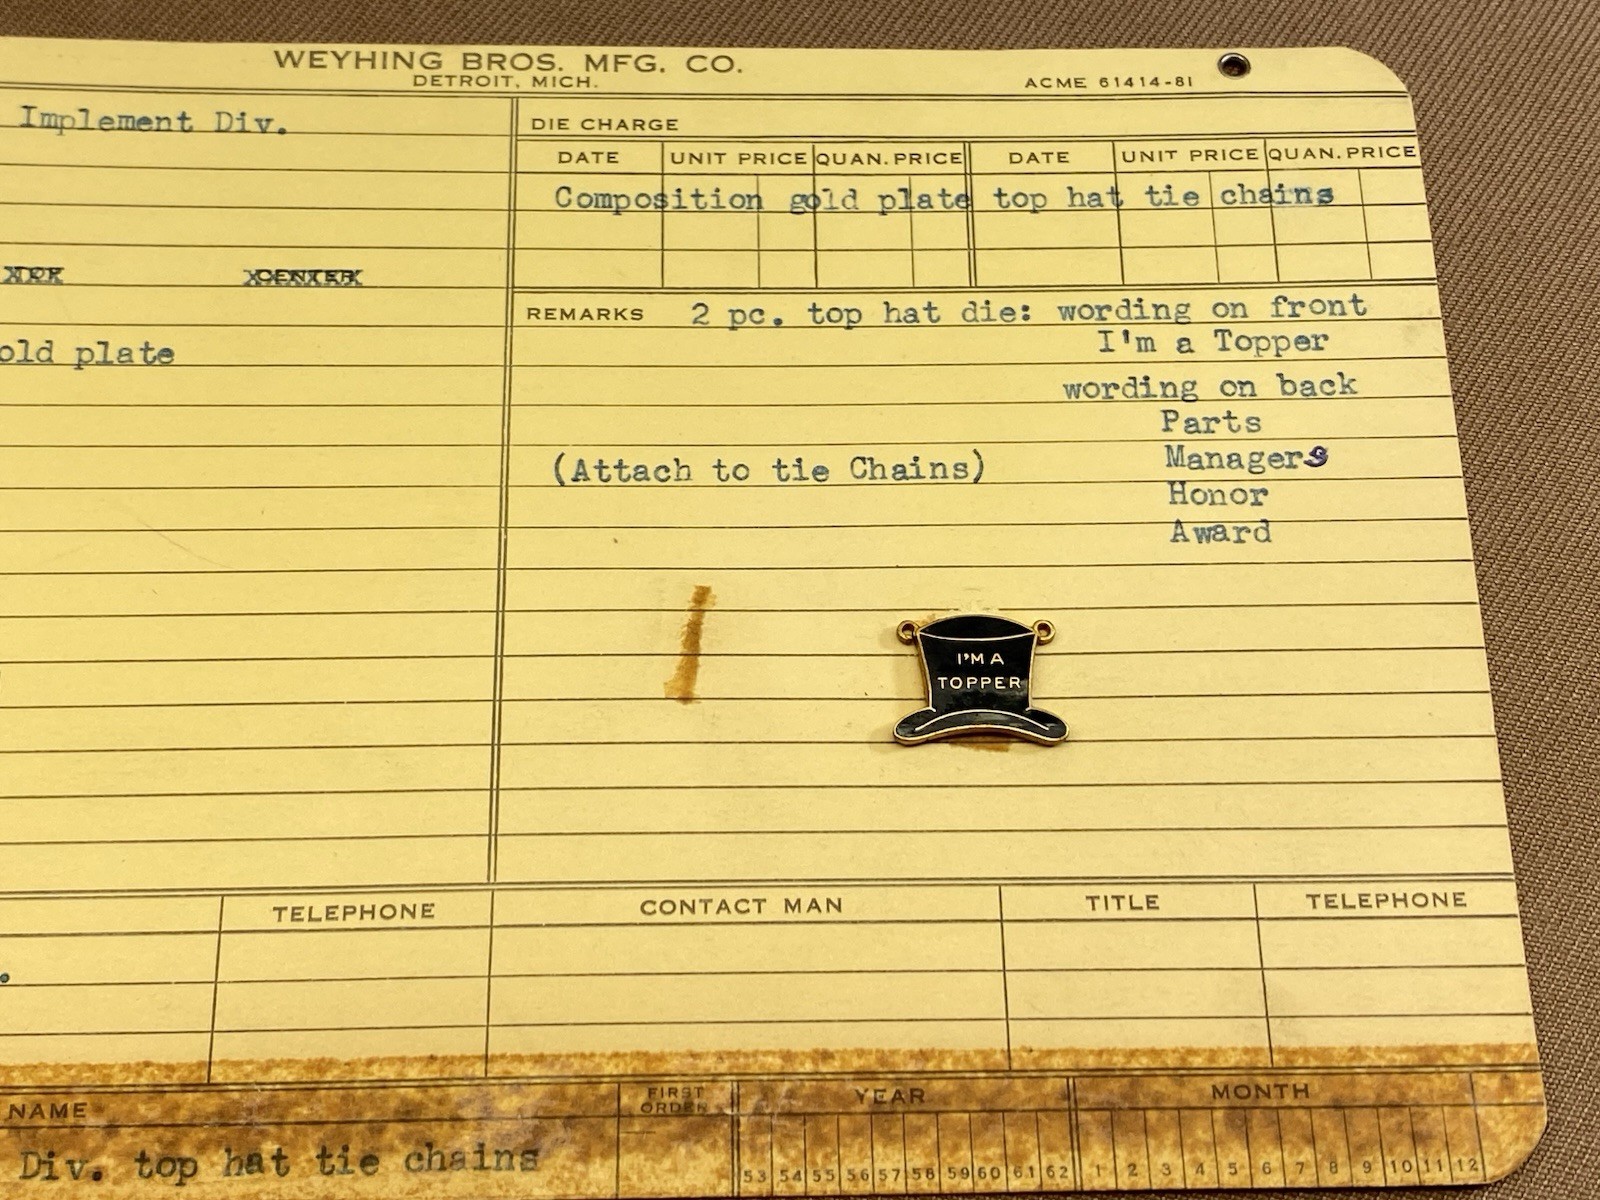 WEYHING BROS. MFG. CO.
DETROIT, MICH.
ACME 61414-81
Implement Div.
DIE CHARGE
DATE UNIT PRICE QUAN. PRICE DATE UNIT PRICE QUAN. PRICE
Composition gold plate top hat tie chains
REMARKS 2 pc. top hat die: wording on front
I'm a Topper
old plate
wording on back
Parts
Managers
(Attach to tie Chains)
Honor
Award
I'M A
TOPPER
TELEPHONE CONTACT MAN TITLE TELEPHONE
NAME FIRST ORDER YEAR MONTH
Div. top hat tie chains
53 54 55 56 57 58 59 60 61 62 1 2 3 4 5 6 7 8 9 10 11 12